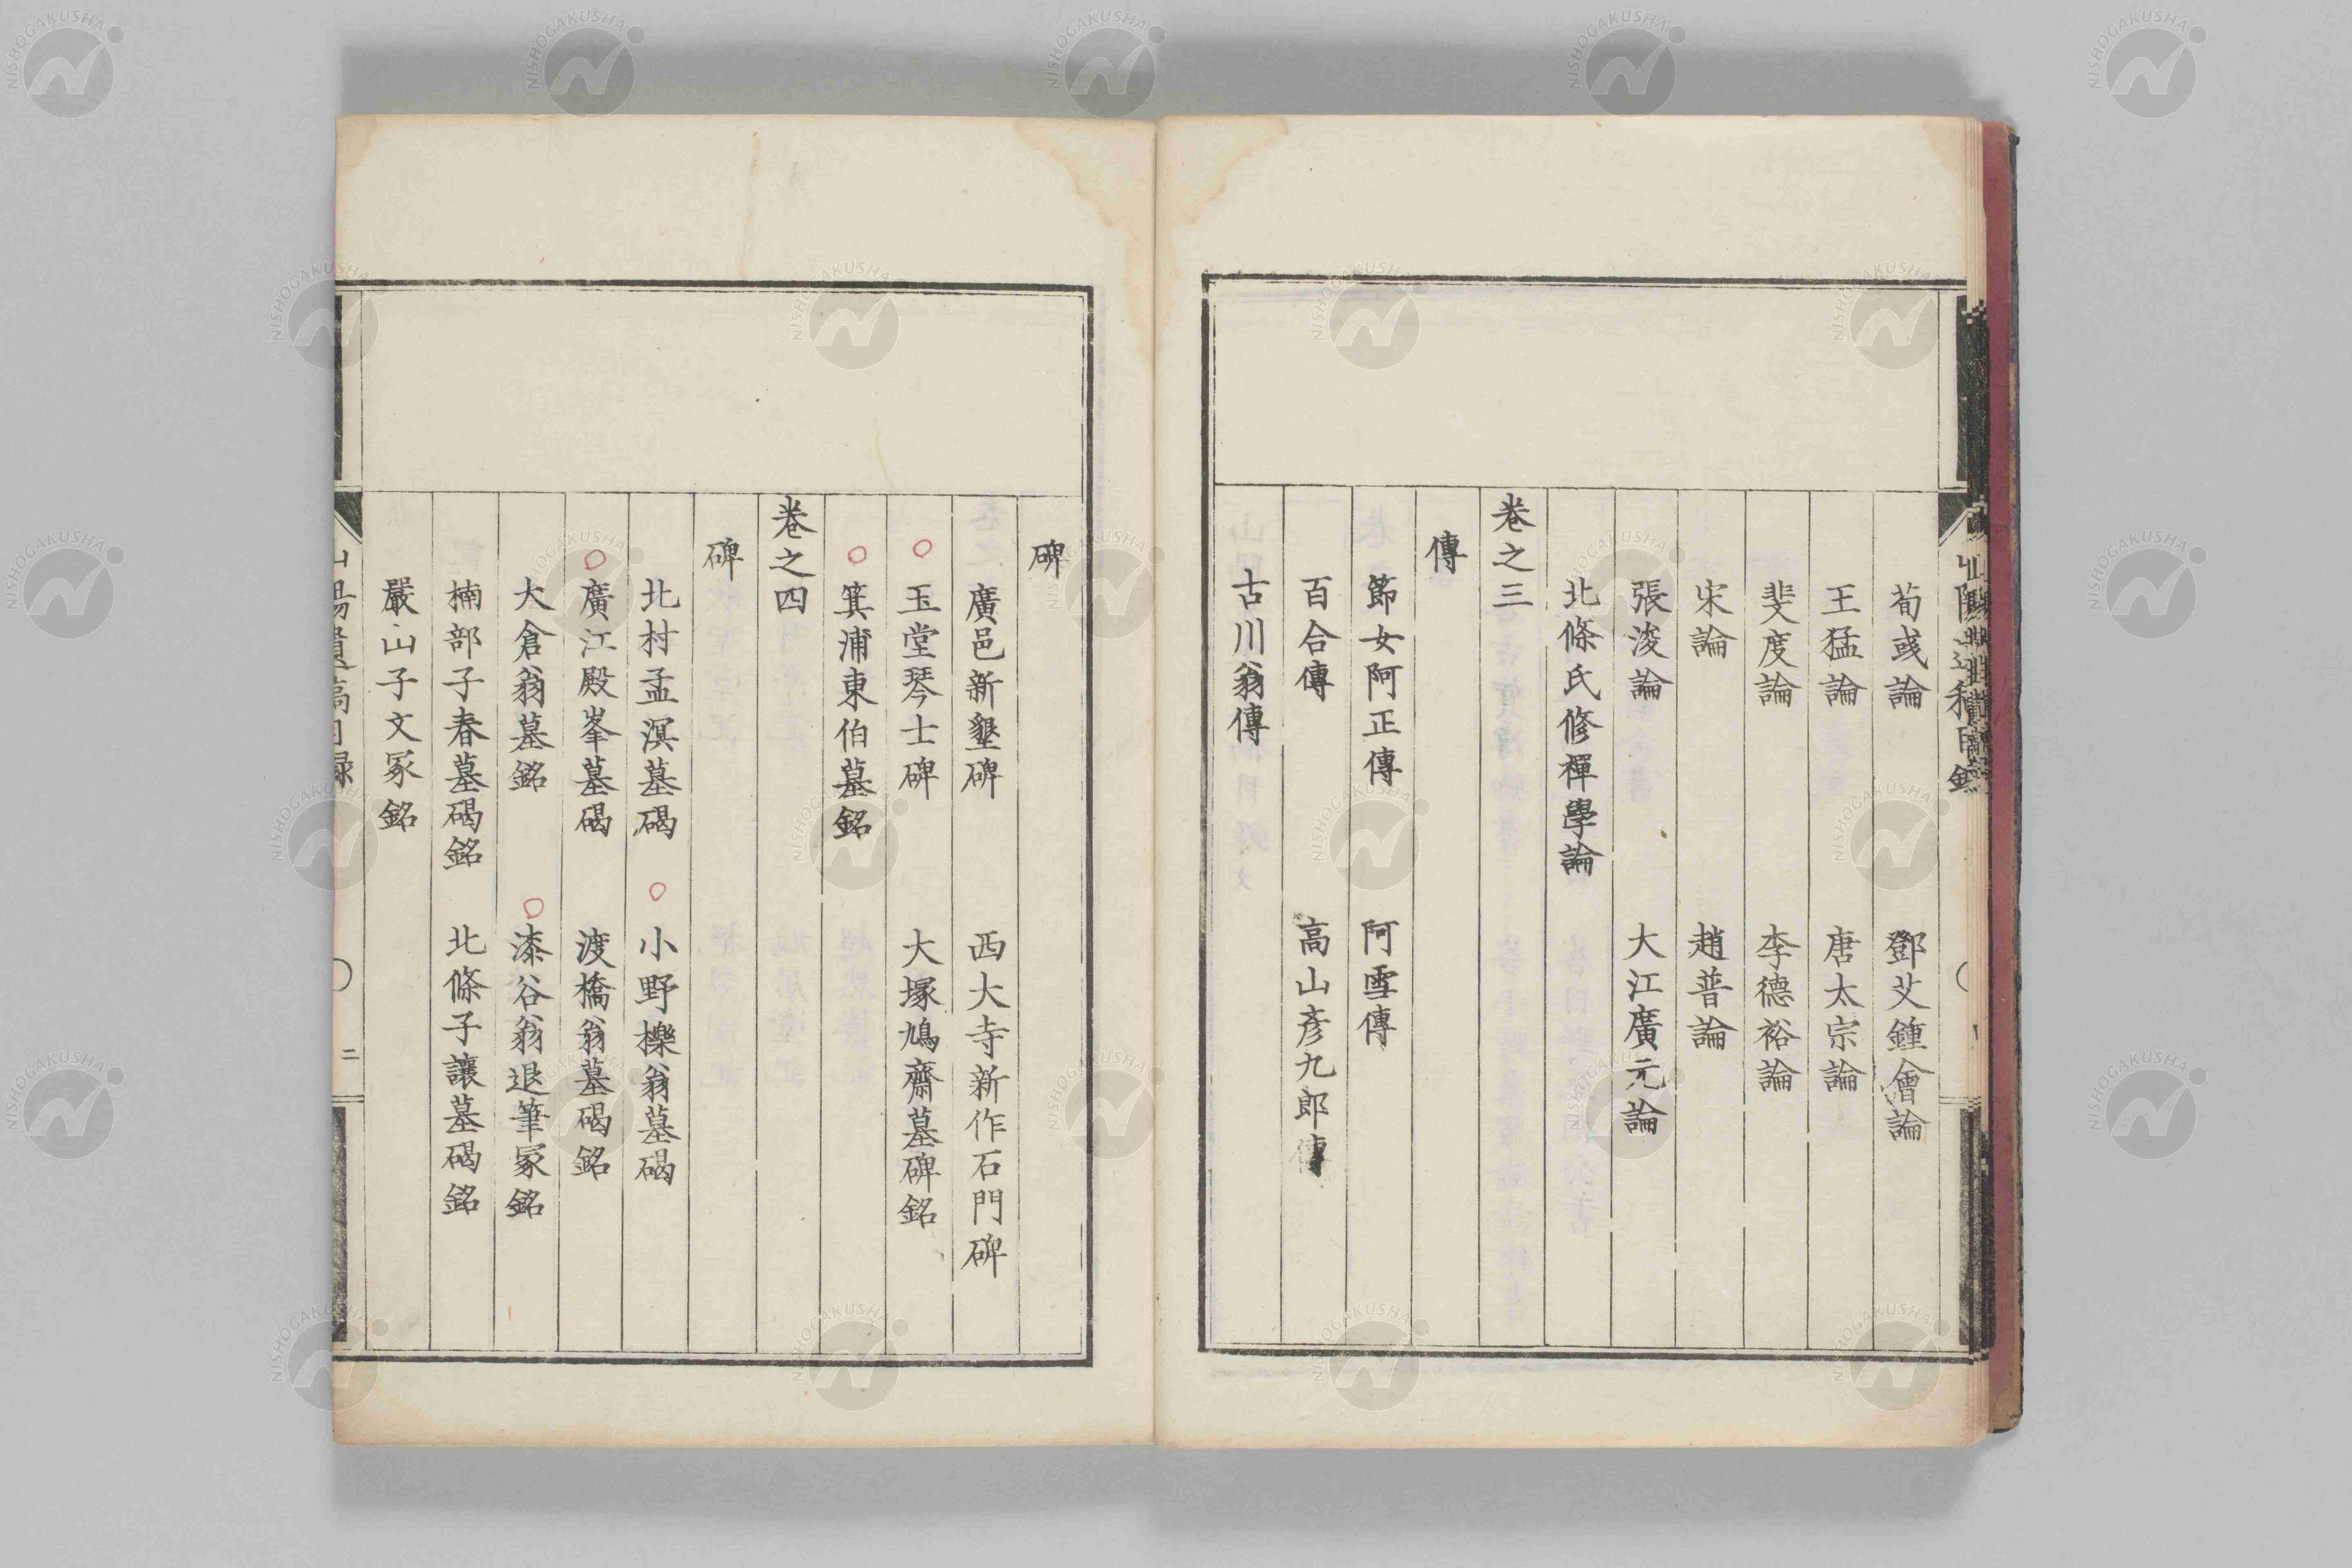 荀彧論 鄧艾鍾會論
王猛論 唐太宗論
斐度論 李德裕論
宋論 趙普論
張浚論 大江廣元論
北條氏修禪學論
卷之三
傳
節女阿正傳 阿雪傳
百合傳 高山彥九郎傳
古川翁傳
碑
廣邑新墾碑 西大寺新作石門碑
玉堂琴士碑 大塚鳩齋墓碑銘
箕浦東伯墓銘
卷之四
碑
北村孟溟墓碣 小野櫟翁墓碣
廣江殿峯墓碣 渡橋翁墓碣銘
大倉翁墓銘 漆谷翁退筆冢銘
楠部子春墓碣銘 北條子讓墓碣銘
嚴山子文冢銘
山陽遺稿目録 二
NISHOGAKUSHA